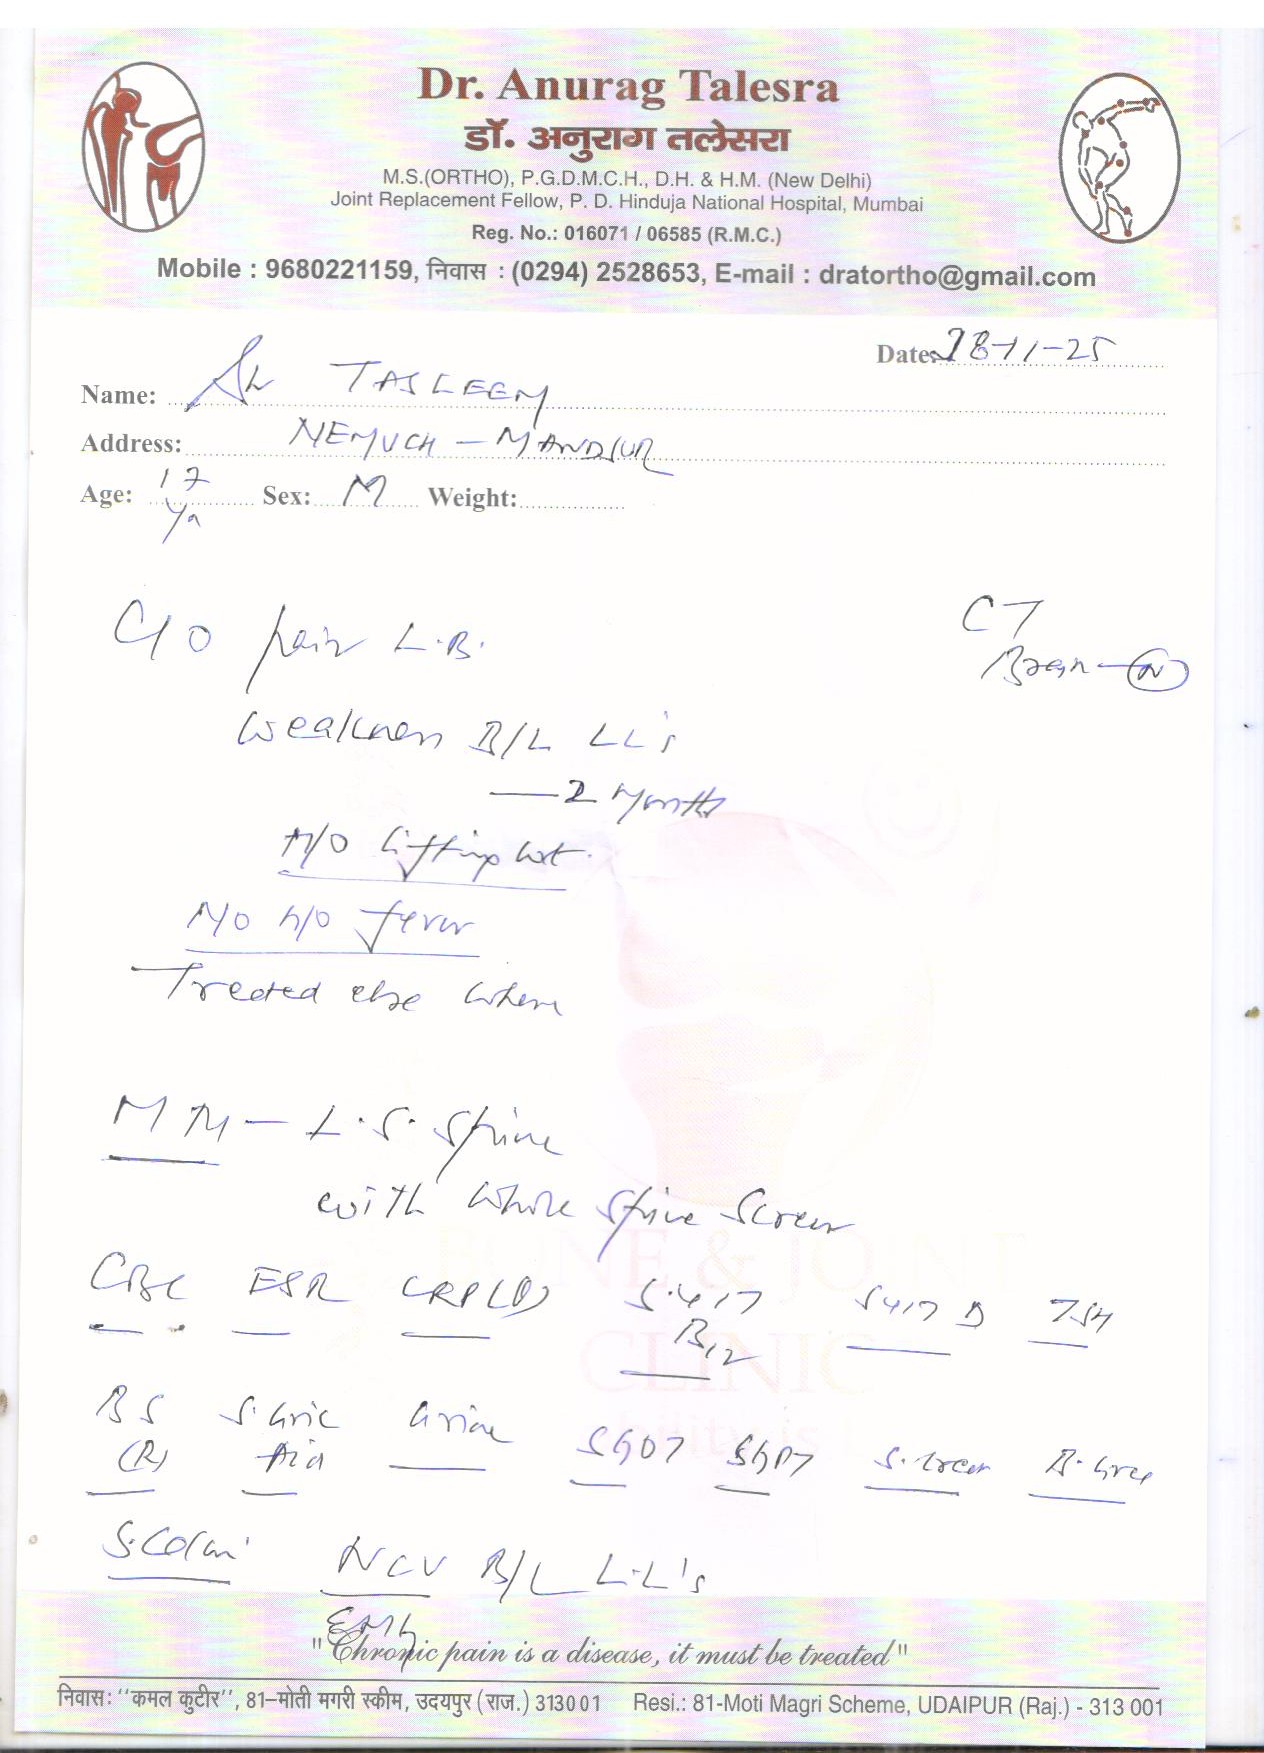 Dr. Anurag Talesra
डॉ. अनुराग तलेसरा
M.S.(ORTHO), P.G.D.M.C.H., D.H. & H.M. (New Delhi)
Joint Replacement Fellow, P. D. Hinduja National Hospital, Mumbai
Reg. No.: 016071 / 06585 (R.M.C.)
Mobile : 9680221159, निवास : (0294) 2528653, E-mail : dratortho@gmail.com
Date: 28-11-25
Name: TASLEEM
Address: NEMUCH - MANDSUR
Age: 17 Yr Sex: M Weight:
C/O pain L.B.
CT
Brain - N
Weakness B/L LL's
- 2 Months
H/O Lifting wt.
No h/o fever
Treated else where
MRI - L.S. Spine
with whole spine screen
CBC ESR CRP(Q) S.VIT B12 S VIT D TSH
BS (R) S.Uric Acid Urine SGOT SGPT S.Creat B.Urea
S.Calci NCV B/L L.L's
EMG
"Chronic pain is a disease, it must be treated"
BONE & JOINT
CLINIC
निवास: "कमल कुटीर", 81–मोती मगरी स्कीम, उदयपुर (राज.) 313001 Resi.: 81-Moti Magri Scheme, UDAIPUR (Raj.) - 313 001